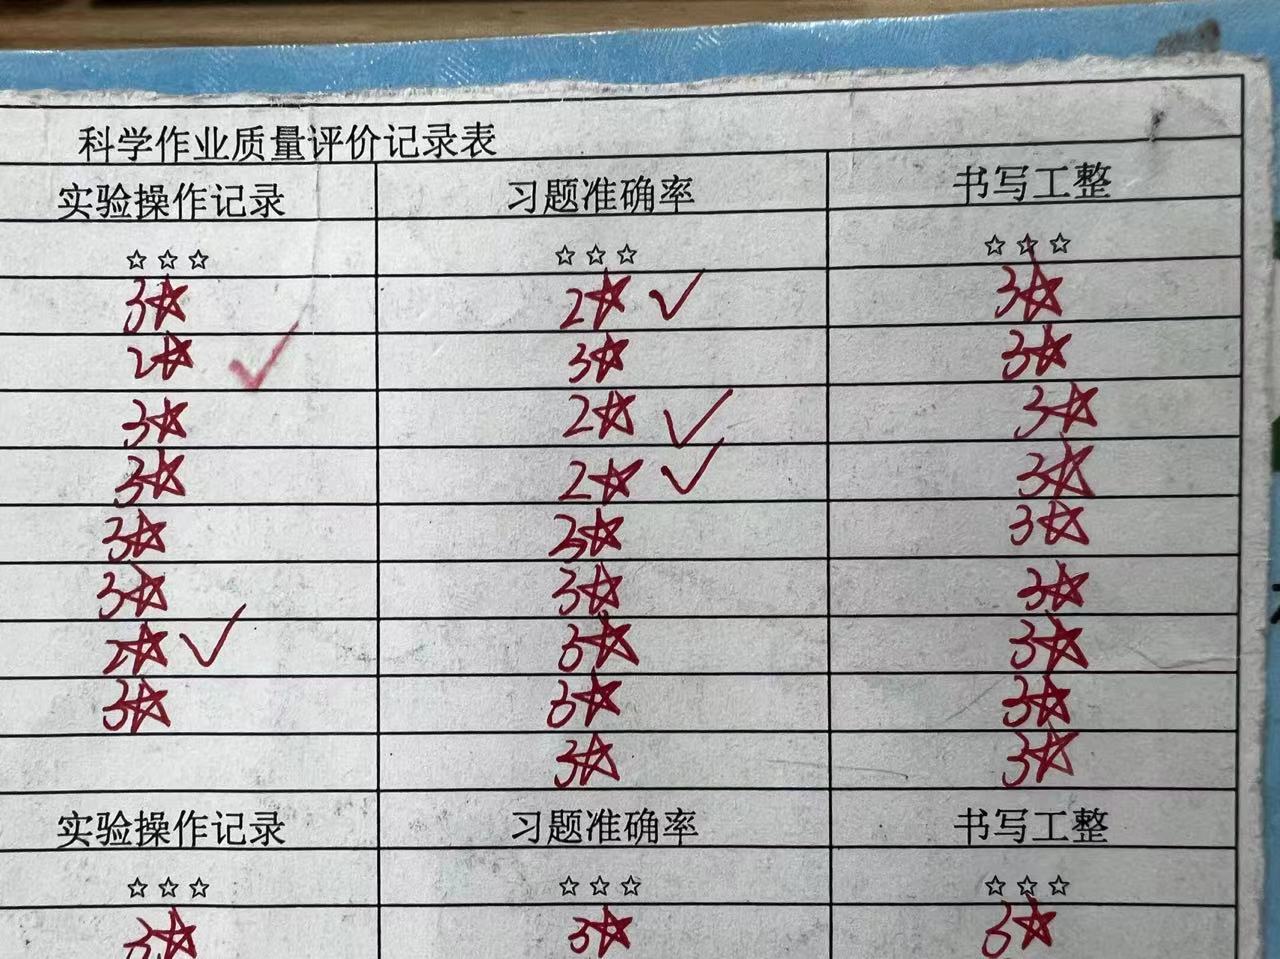 科学作业质量评价记录表
实验操作记录 习题准确率 书写工整
☆☆☆ ☆☆☆ ☆☆☆
3☆ 2☆ ✓ 3☆
2☆ ✓ 3☆ 3☆
3☆ 2☆ ✓ 3☆
3☆ 2☆ ✓ 3☆
3☆ 3☆ 3☆
3☆ 3☆ 3☆
2☆ ✓ 3☆ 3☆
3☆ 3☆ 3☆
3☆ 3☆
实验操作记录 习题准确率 书写工整
☆☆☆ ☆☆☆ ☆☆☆
3☆ 3☆ 3☆